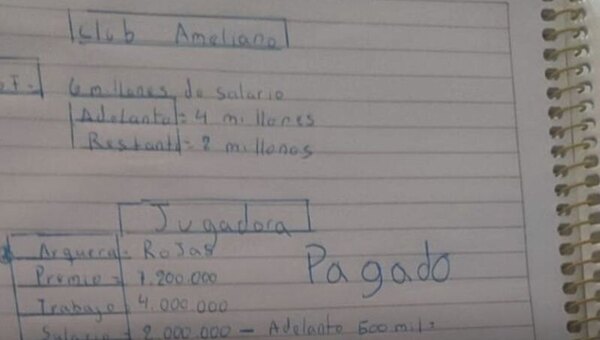 Club Ameliano
6 millones de salario
Adelanto = 4 millones
Restant = 2 millones
Jugadora
Arquera = Rojas
Pagado
Premio = 1.200.000
Trabajo = 4.000.000
Salario = 2.000.000 - Adelanto 500 mil =